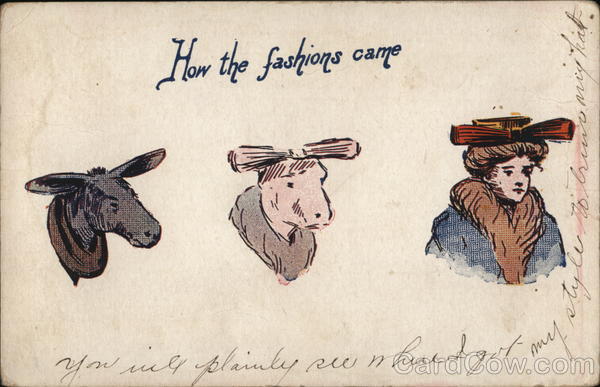 How the fashions came
You will plainly see where I got
my style to trim my hat.
CardCow.com